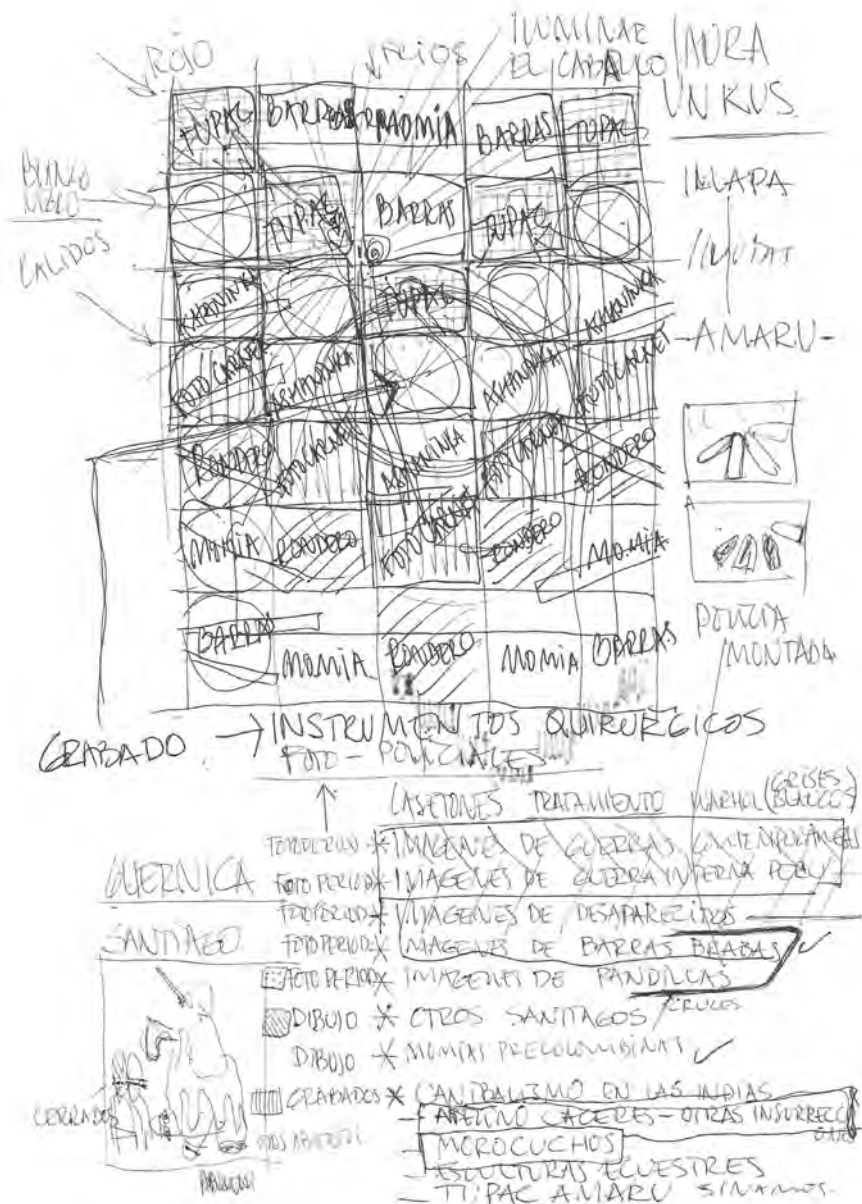 ROJO
FRIOS
ILUMINAR
EL CABALLO
UNKUS
TUPAC BARRAS MOMIA BARRAS TUPAC
BLANCO
CALIDOS
TUPAC BARRAS TUPAC
ILLAPA
ASHANINKA TUPAC ASHANINKA
-AMARU-
FOTO CARNET ASHANINKA ASHANINKA FOTO CARNET
RONDERO FOTO CARNET ASHANINKA FOTO CARNET RONDERO
MOMIA RONDERO FOTO CARNET RONDERO MOMIA
BARRAS MOMIA RONDERO MOMIA BARRAS
POLICIA
MONTADA
GRABADO → INSTRUMENTOS QUIRURGICOS
FOTO - POLICIALES
CASETONES TRATAMIENTO WARHOL (GRISES
BLANCOS)
FOTOPERIOD * IMAGENES DE GUERRAS CONTEMPORANEAS
GUERNICA
FOTO PERIOD * IMAGENES DE GUERRA INTERNA PERU
FOTOPERIOD * IMAGENES DE DESAPARECIDOS
SANTIAGO
FOTOPERIOD * IMAGENES DE BARRAS BRABAS ✓
FOTO PERIOD * IMAGENES DE PANDILLAS
CRUCES
DIBUJO * OTROS SANTIAGOS
DIBUJO * MOMIAS PRECOLOMBINAS ✓
GRABADOS * CANIBALISMO EN LAS INDIAS
CERRADOS
- AVELINO CACERES - OTRAS INSURRECC
OJOS ABIERTOS
- MOROCUCHOS
- ESCULTURAS ECUESTRES
- TUPAC AMARU SINAMOS.